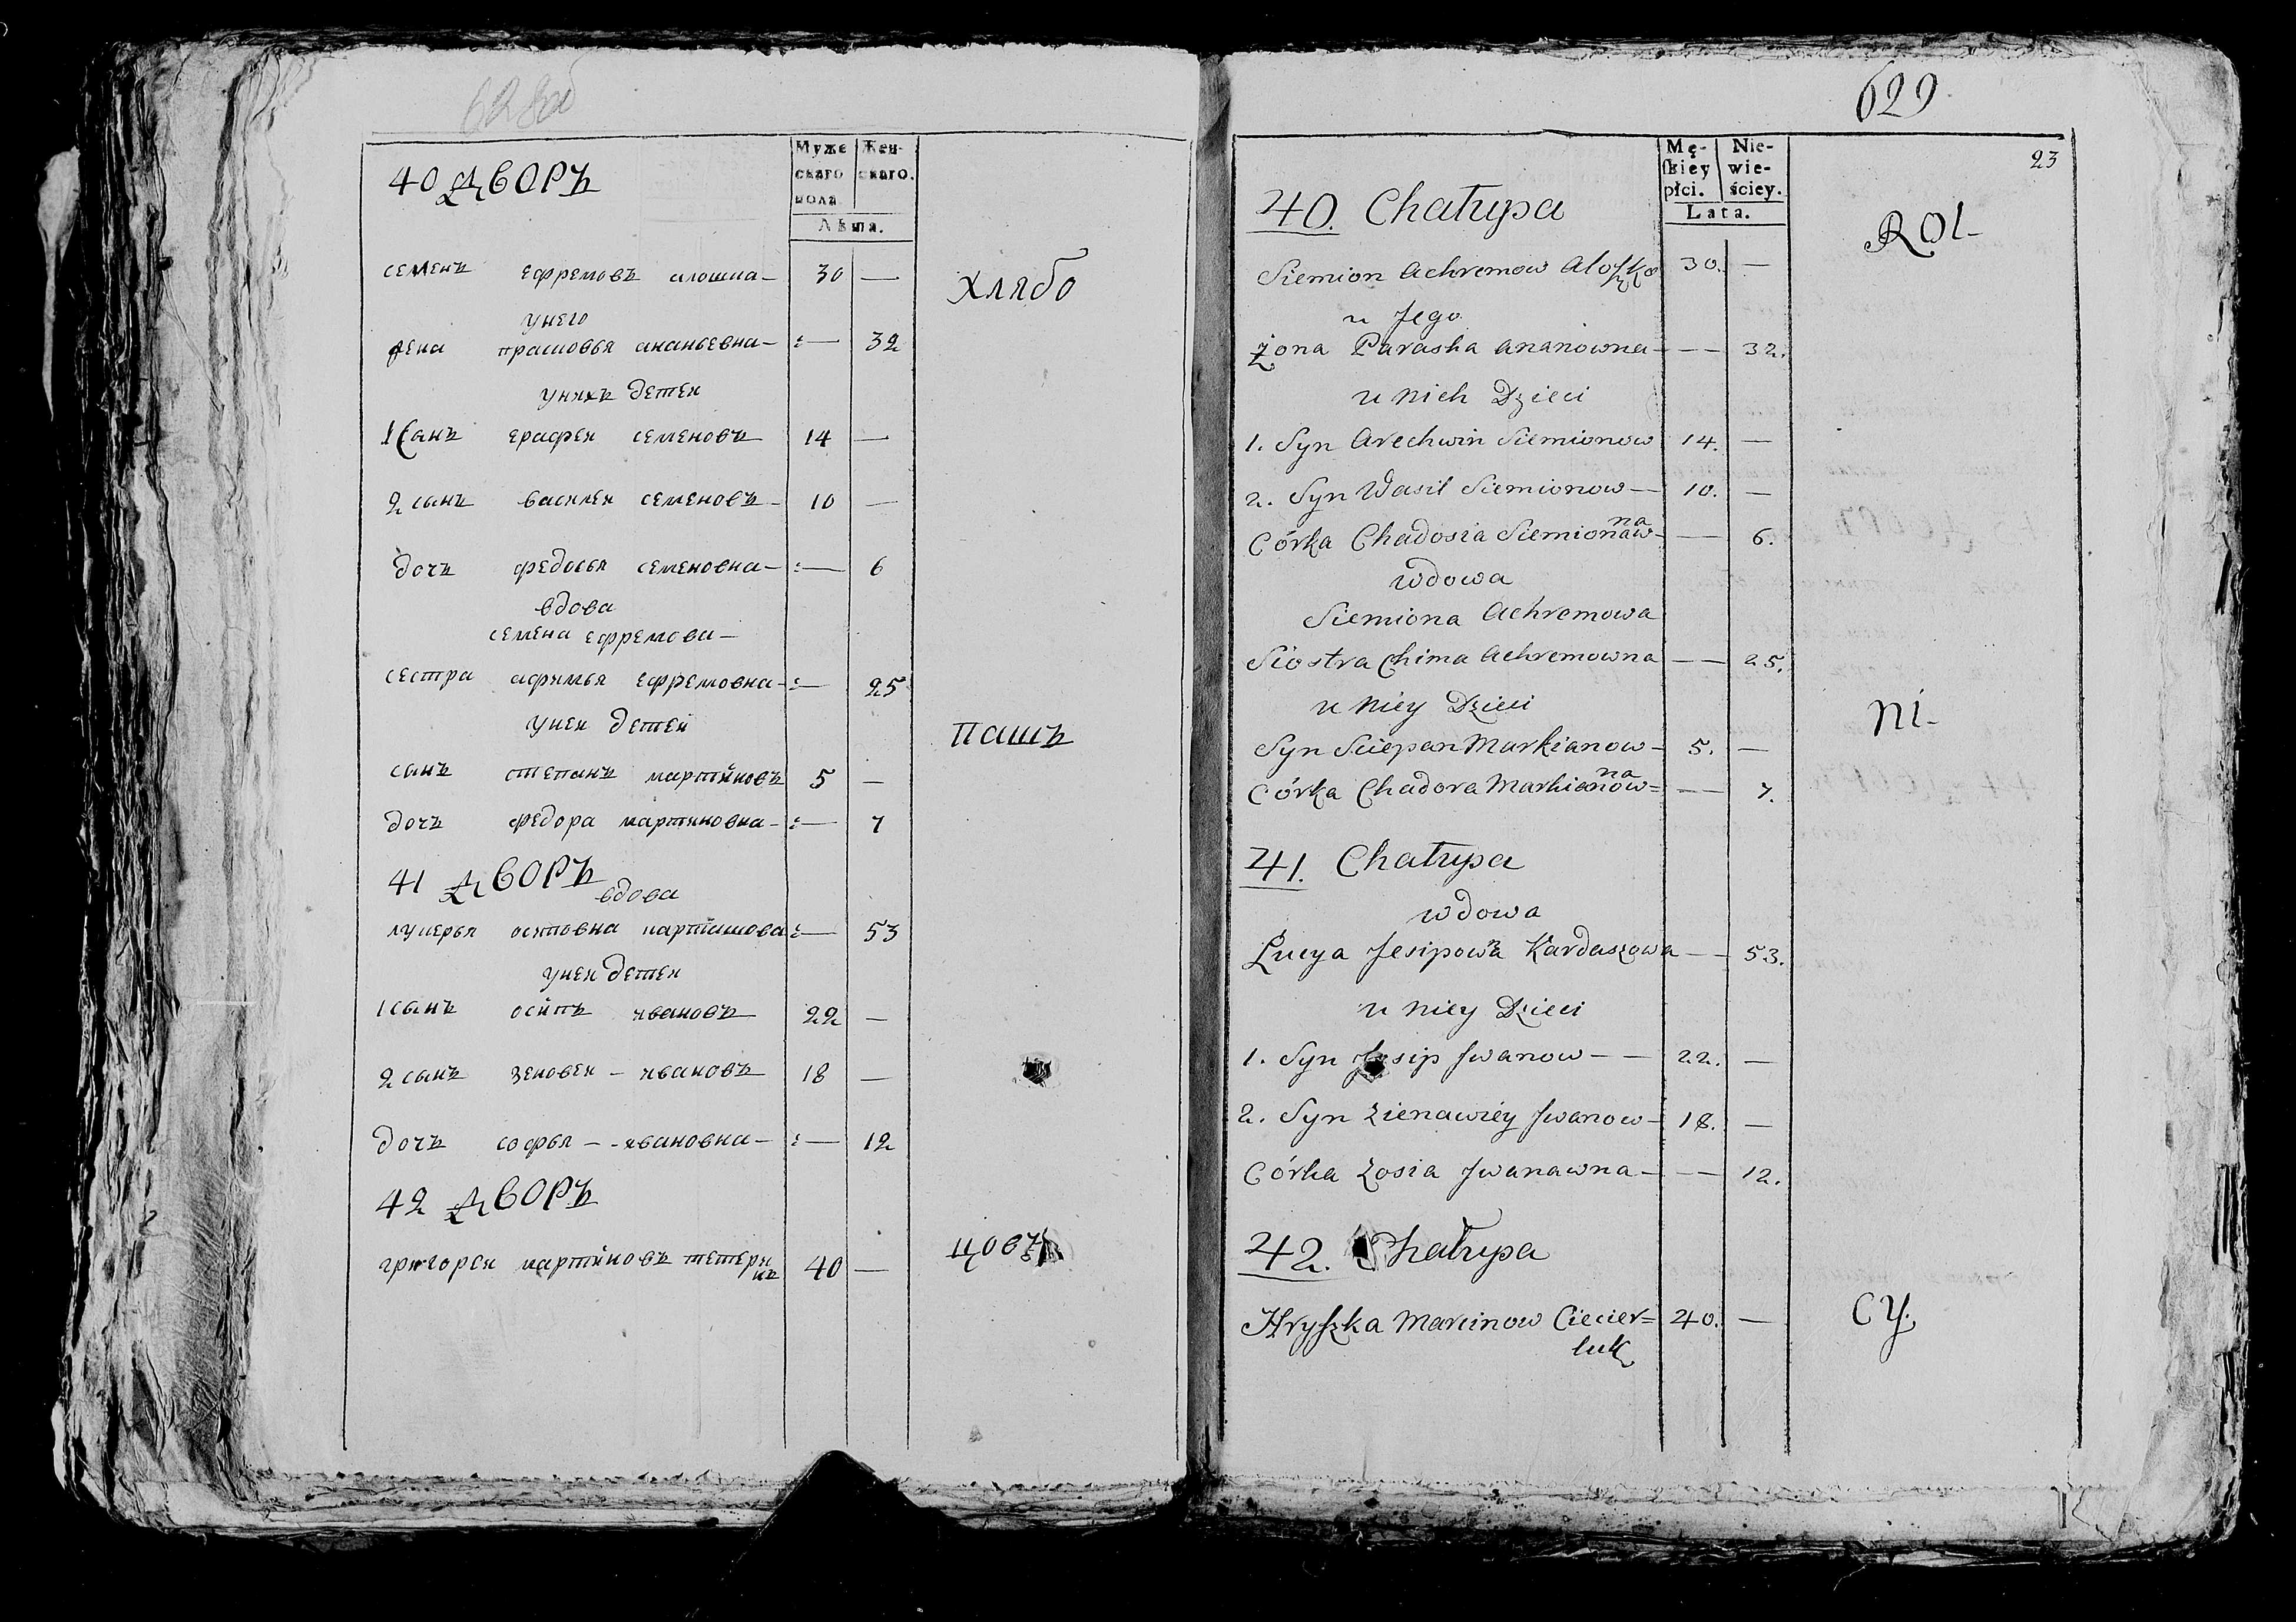 628об
40 ДВОРЪ
Муже
скаго
пола.
Жен-
скаго.
Лѣта.
семенъ ефремовъ алошка — 30 —
хлябо
унего
жена прасковья ананьевна — :— 32
унихъ детеи
1 Сынъ ерафеи семеновъ 14 —
2 сынъ василеи семеновъ — 10 —
дочь федосья семеновна — :— 6
вдова
семена ефремова —
сестра афимья ефремовна — :— 25
унеи детеи
пашъ
сынъ степанъ мартиновъ 5 —
дочь федора мартиновна — :— 7
41 ДВОРЪ
вдова
лукерья осиповна карташова :— 53
унеи детеи
1 сынъ осипъ ивановъ 22 —
2 сынъ зеновеи — ивановъ 18 —
дочь софья — ивановна — :— 12
42 ДВОРЪ
григореи мартиновъ тетерю
къ 40 —
цовъ
629
23
Mę-
skiey
płci.
Nie-
wie-
ściey.
Lata.
40. Chałupa
ROl-
Siemion Achremow Aloszko 30. —
u Jego
Żona Paraska Ananowna — — 32.
u Nich Dzieci
1. Syn Arechwin Siemionow 14. —
2. Syn Wasil Siemionow — 10. —
Córka Chadosia Siemionawna — — 6.
wdowa
Siemiona Achremowa
Siostra Chima Achremowna — — 25.
u Niey Dzieci
Ni-
Syn Sciepan Markianow — 5. —
Córka Chadora Markianowna = — — 7.
41. Chałupa
wdowa
Łucya Jesipowa Kardaszowa — — 53.
u Niey Dzieci
1. Syn Josip Jwanow — — 22. —
2. Syn Zienawiey Jwanow — 18. —
Córka Zosia Jwanawna — — — 12.
42. Chałupa
CY.
Hryszka Marcinow Ciecier= 40. —
luk